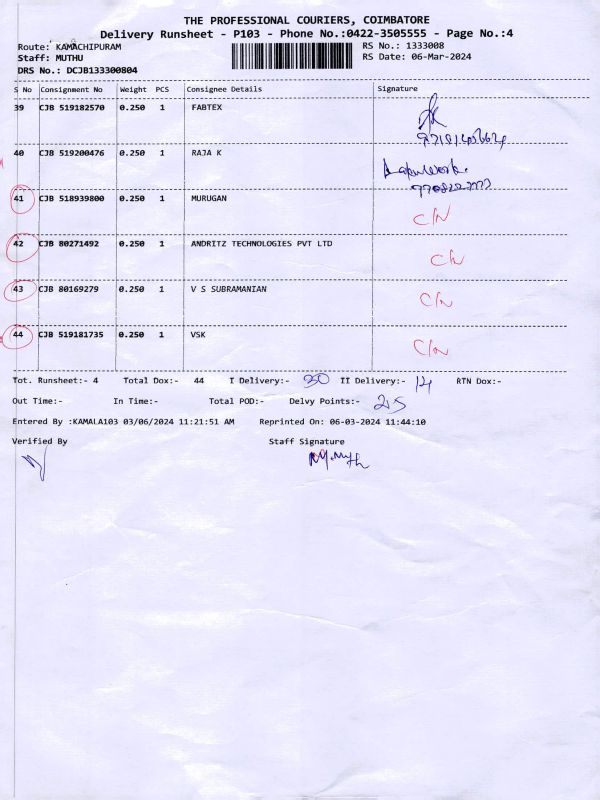 THE PROFESSIONAL COURIERS, COIMBATORE
Delivery Runsheet - P103 - Phone No.:0422-3505555 - Page No.:4
Route: KAMACHIPURAM RS No.: 1333008
Staff: MUTHU RS Date: 06-Mar-2024
DRS No.: DCJB133300804
S No Consignment No Weight PCS Consignee Details Signature
39 CJB 519182570 0.250 1 FABTEX
40 CJB 519200476 0.250 1 RAJA K
41 CJB 518939800 0.250 1 MURUGAN C/N
42 CJB 80271492 0.250 1 ANDRITZ TECHNOLOGIES PVT LTD C/N
43 CJB 80169279 0.250 1 V S SUBRAMANIAN C/N
44 CJB 519181735 0.250 1 VSK C/N
Tot. Runsheet:- 4 Total Dox:- 44 I Delivery:- 30 II Delivery:- 14 RTN Dox:-
Out Time:- In Time:- Total POD:- Delvy Points:- 25
Entered By :KAMALA103 03/06/2024 11:21:51 AM Reprinted On: 06-03-2024 11:44:10
Verified By Staff Signature